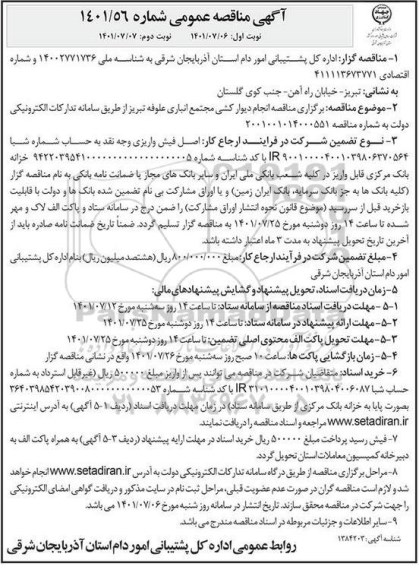 آگهی مناقصه عمومی شماره ۱۴۰۱/۵۶
نوبت اول: ۱۴۰۱/۰۷/۰۶ نوبت دوم: ۱۴۰۱/۰۷/۰۷
۱- مناقصه گزار: اداره کل پشتیبانی امور دام استان آذربایجان شرقی به شناسه ملی ۱۴۰۰۲۷۷۱۷۳۶ و شماره
اقتصادی ۴۱۱۱۱۳۶۷۳۷۷۱
به نشانی: تبریز- خیابان راه آهن- جنب کوی گلستان
۲- موضوع مناقصه: برگزاری مناقصه انجام دیوار کشی مجتمع انباری علوفه تبریز از طریق سامانه تدارکات الکترونیکی
دولت به شماره مناقصه ۲۰۰۱۰۰۱۰۱۴۰۰۰۵۵۱
۳- نوع تضمین شرکت در فرایند ارجاع کار: اصل فیش واریزی وجه نقد به حساب شماره شبا
بانک مرکزی قابل واریز در کلیه شعب بانکی ملی ایران و سایر بانک های مجاز یا ضمانت نامه بانکی به نام مناقصه گزار
(کلیه بانک ها به جز بانک سرمایه، بانک ایران زمین) و یا اوراق مشارکت بی نام تضمین شده بانک ها و دولت با قابلیت
بازخرید قبل از سررسید (موضوع قانون نحوه انتشار اوراق مشارکت) را ضمن درج در سامانه ستاد و پاکت الف لاک و مهر
شده تا ساعت ۱۴ روز دوشنبه مورخ ۱۴۰۱/۰۷/۲۵ به مناقصه گزار تسلیم گردد. ضمناً تاریخ ضمانت نامه صادره باید از
آخرین تاریخ تحویل پیشنهاد به مدت ۳ ماه اعتبار داشته باشد.
۴- مبلغ تضمین شرکت در فرآیند ارجاع کار: مبلغ ۸۰۰/۰۰۰/۰۰۰ ریال (هشتصد میلیون ریال) بنام اداره کل پشتیبانی
امور دام استان آذربایجان شرقی
۵- زمان دریافت اسناد، تحویل پیشنهاد و گشایش پیشنهادهای مالی:
۵-۱- مهلت دریافت اسناد مناقصه از سامانه ستاد: تا ساعت ۱۴ روز سه شنبه مورخ ۱۴۰۱/۰۷/۱۲
۵-۲- مهلت ارائه پیشنهاد در سامانه ستاد: تا ساعت ۱۴ روز دوشنبه مورخ ۱۴۰۱/۰۷/۲۵
۵-۳- مهلت تحویل پاکت الف محتوی اصلی تضمین: تا ساعت ۱۴ روز دوشنبه مورخ ۱۴۰۱/۰۷/۲۵
۵-۴- زمان بازگشایی پاکت ها: ساعت ۱۰ صبح روز سه شنبه مورخ ۱۴۰۱/۰۷/۲۶ واقع در نشانی مناقصه گزار
۶- خرید اسناد: متقاضیان شرکت در مناقصه می توانند پس از واریز مبلغ ۵۰۰۰۰۰ ریال (غیر قابل استرداد به شماره
بصورت پایا به خزانه بانک مرکزی از طریق سامانه ستاد) در زمان مهلت دریافت اسناد (ردیف ۵-۱ آگهی) به آدرس اینترنتی
www.setadiran.ir مراجعه و اسناد مناقصه را دریافت نمایند.
۷- فیش رسید پرداخت مبلغ ۵۰۰۰۰۰ ریال خرید اسناد در مهلت ارایه پیشنهاد (ردیف ۵-۳ آگهی) به همراه پاکت الف به
دبیرخانه کمیسیون معاملات استان تحویل گردد.
۸- مراحل برگزاری مناقصه از طریق درگاه سامانه تدارکات الکترونیکی دولت به آدرس www.setadiran.ir انجام خواهد
شد و لازم است مناقصه گران در صورت عدم عضویت قبلی، مراحل ثبت نام در سایت مذکور و دریافت گواهی امضای الکترونیکی
را جهت شرکت در مناقصه محقق سازند. تاریخ انتشار در سامانه روز شنبه مورخ ۱۴۰۱/۰۷/۰۶ می باشد.
۹- سایر اطلاعات و جزئیات مربوطه در اسناد مناقصه مندرج می باشد.
روابط عمومی اداره کل پشتیبانی امور دام استان آذربایجان شرقی
شناسه آگهی: ۱۳۸۴۲۰۳